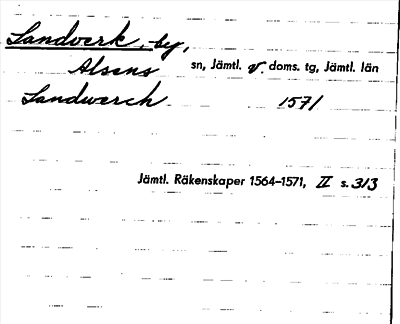 Landverk, by,
Alsens sn, Jämtl. v. doms. tg, Jämtl. län
Landwerch 1571
Jämtl. Räkenskaper 1564–1571, II s. 313